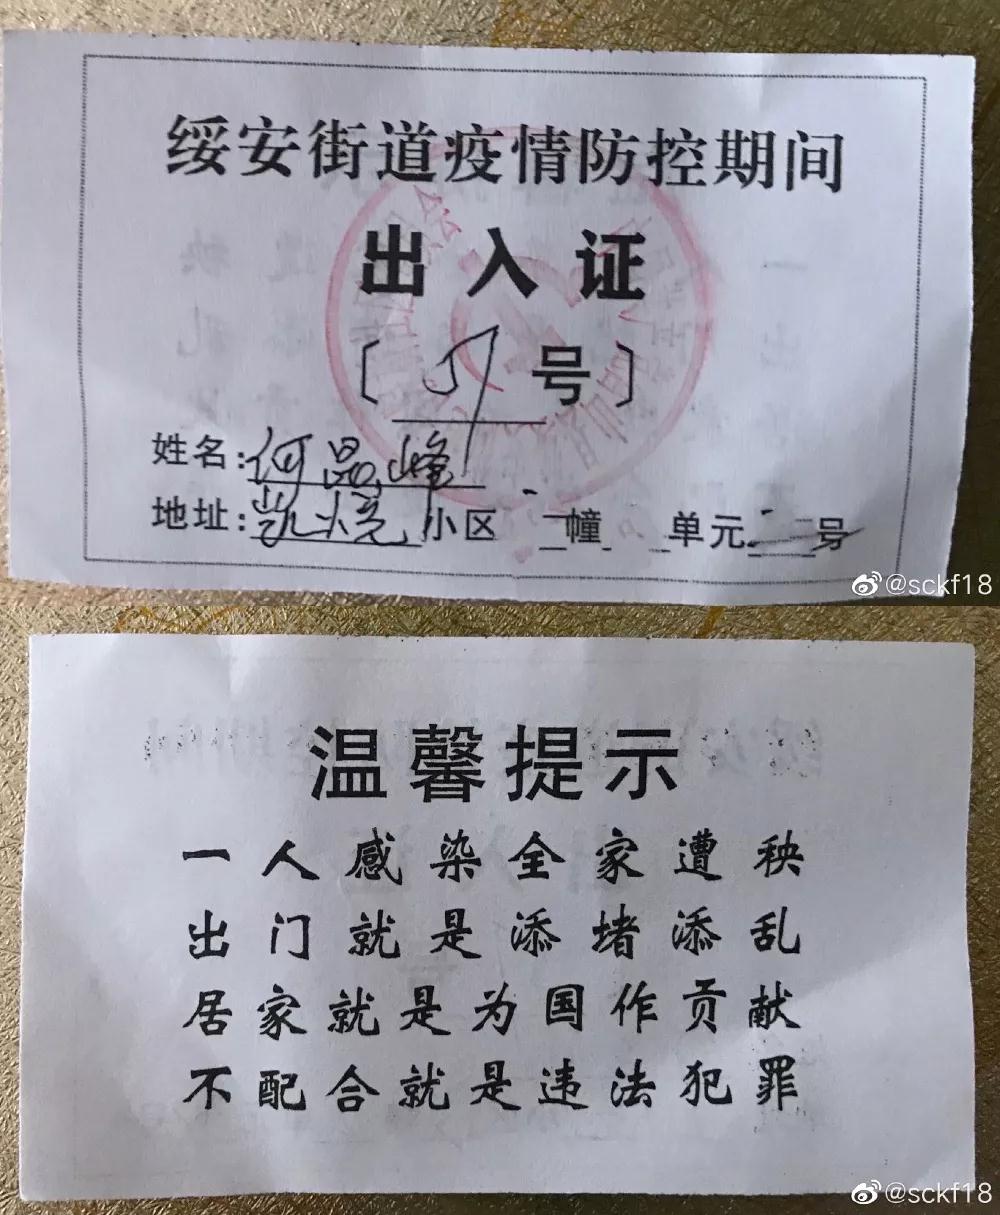 绥安街道疫情防控期间
出入证
〔 号〕
姓名:何晶峰
地址:凯悦小区 幢 单元 号
@sckf18
温馨提示
一人感染全家遭秧
出门就是添堵添乱
居家就是为国作贡献
不配合就是违法犯罪
@sckf18